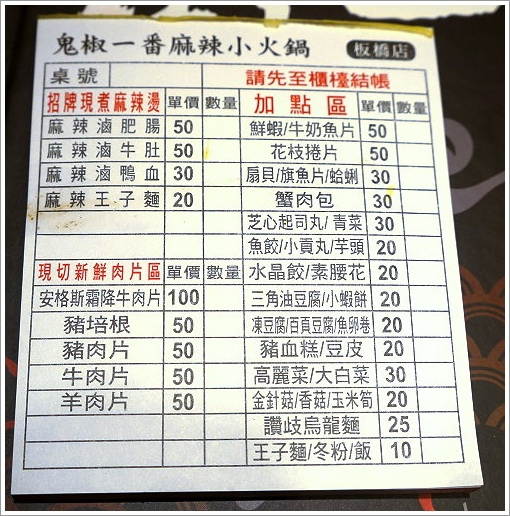 鬼椒一番麻辣小火鍋 板橋店
桌號 請先至櫃檯結帳
招牌現煮麻辣燙 單價 數量 加點區 單價 數量
麻辣滷肥腸 50 鮮蝦/牛奶魚片 50
麻辣滷牛肚 50 花枝捲片 50
麻辣滷鴨血 30 扇貝/旗魚片/蛤蜊 30
麻辣王子麵 20 蟹肉包 30
芝心起司丸/青菜 30
魚餃/小貢丸/芋頭 20
現切新鮮肉片區 單價 數量 水晶餃/素腰花 20
安格斯霜降牛肉片 100 三角油豆腐/小蝦餅 20
豬培根 50 凍豆腐/百頁豆腐/魚卵卷 20
豬肉片 50 豬血糕/豆皮 20
牛肉片 50 高麗菜/大白菜 30
羊肉片 50 金針菇/香菇/玉米筍 20
讚歧烏龍麵 25
王子麵/冬粉/飯 10